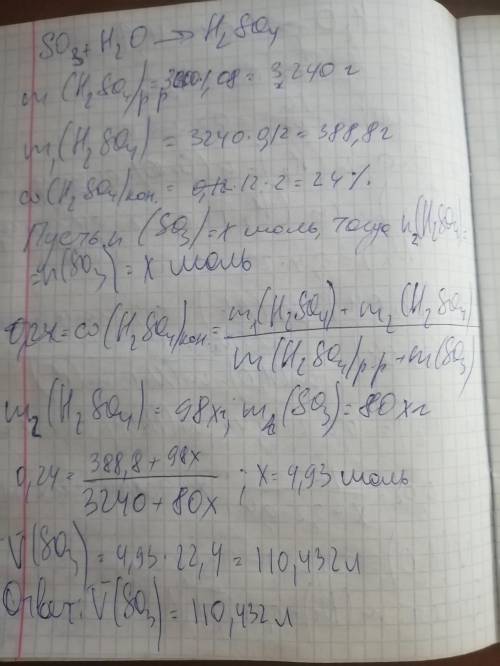 SO3 + H2O → H2SO4
m (H2SO4)р-р = 3000·1,08 = 3240 г
m1(H2SO4) = 3240·0,12 = 388,8 г
ω(H2SO4)кон. = 12·2 = 24 %.
Пусть n (SO3) = x моль, тогда n2(H2SO4) =
= n(SO3) = x моль
0,24 = ω(H2SO4)кон. = m1(H2SO4) + m2(H2SO4)
m(H2SO4)р-р + m(SO3)
m2(H2SO4) = 98x г; m (SO3) = 80x г
0,24 = 388,8 + 98x
3240 + 80x ; x = 4,93 моль
V(SO3) = 4,93·22,4 = 110,432 л
Ответ: V(SO3) = 110,432 л